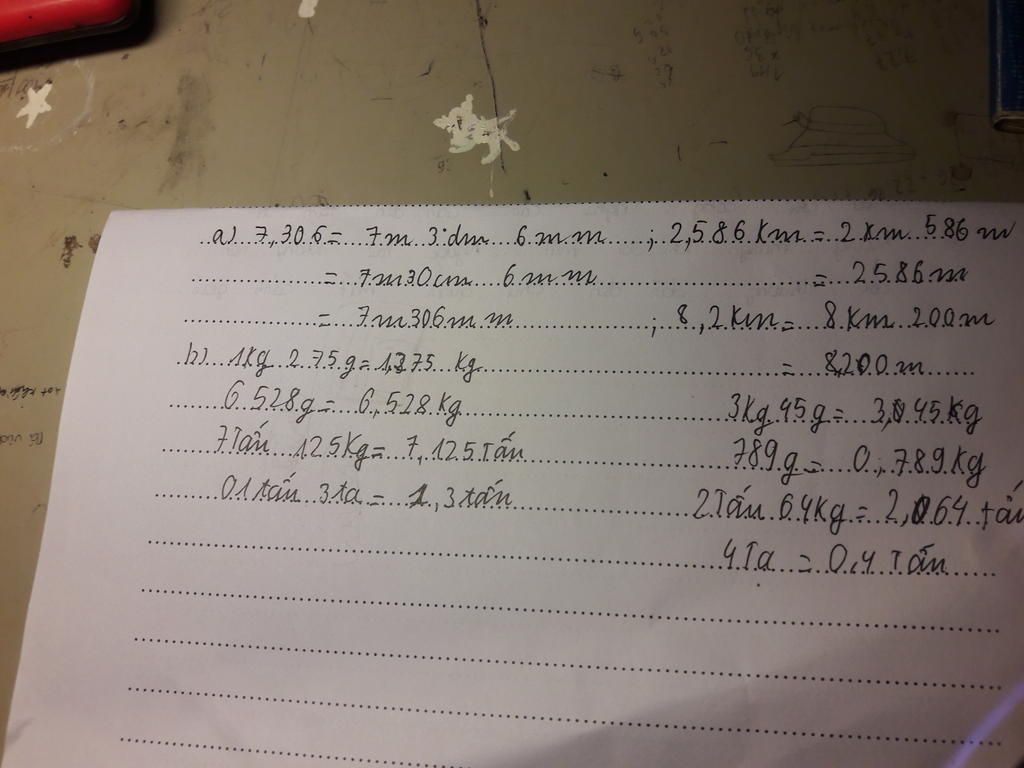 a) 7,306 = 7m 3 dm 6 mm ; 2,586 km = 2 km 586 m
= 7m30cm 6mm = 2586m
= 7m306mm ; 8,2km = 8 km 200m
b) 1kg 275g = 1,275 kg = 8200m
6 528g = 6,528kg 3kg 45g = 3,045kg
7 Tấn 125kg = 7,125 Tấn 789g = 0,789kg
01 tấn 3 tạ = 1,3 tấn 2 Tấn 64kg = 2,064 tấn
4 Tạ = 0,4 Tấn